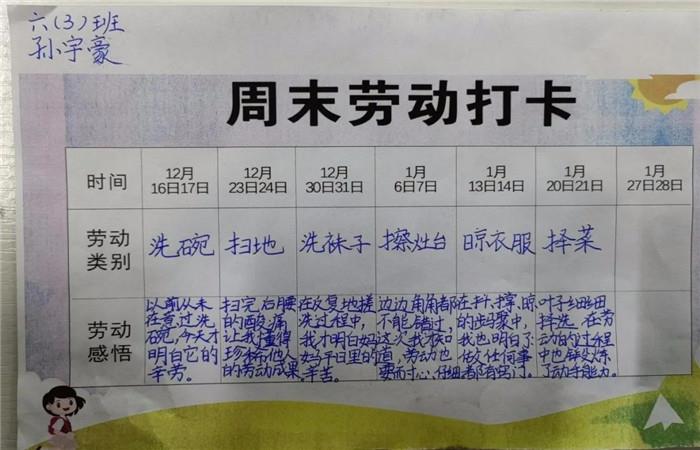 六(3)班
孙宇豪
周末劳动打卡
时间
12月
16日17日
12月
23日24日
12月
30日31日
1月
6日7日
1月
13日14日
1月
20日21日
1月
27日28日
劳动
类别
洗碗
扫地
洗袜子
擦灶台
晾衣服
择菜
劳动
感悟
以前从未
在意过洗
碗,今天才
明白它的
辛劳。
扫完后腰
的酸痛
让我懂得
珍稀他人
的劳动成果。
在反复地搓
洗过程中,
我才明白妈
妈平日里的
辛苦。
边边角角都
不能错过,
这次我才知
道,劳动也
要耐心、仔细
在抖、撑、晾
的步骤中,
我也明白了
做任何事
都有窍门。
叶子细细
择选,在劳
动的过程
中也锻炼
了动手能力。